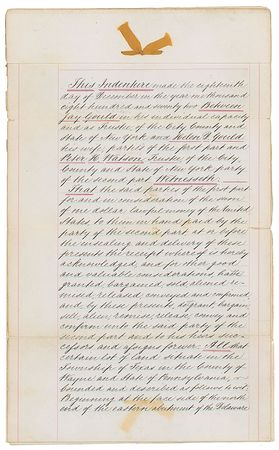 This Indenture made the eighteenth
day of December in the year one thousand
eight hundred and seventy two Between
Jay Gould in his individual capacity
and as Trustee of the City County and
State of New York and Helen D. Gould
his wife, parties of the first part and
Peter H. Watson Trustee of the City,
County and State of New York party
of the second part Witnesseth:
That the said parties of the first part
for and in consideration of the sum
of one dollar lawful money of the United
States to them in hand paid by the
party of the second part at or before
the ensealing and delivery of these
presents the receipt whereof is hereby
acknowledged, and for other good
and valuable considerations hath
granted, bargained, sold, aliened re-
mised, released, conveyed and confirmed
and by these presents do grant, bargain
sell, alien, remise, release, convey and
confirm unto the said party of the
second part and to his heirs suc-
cessors and assigns forever: All that
certain lot of land situate in the
Township of Texas in the County of
Wayne and State of Pennsylvania,
bounded and described as follows to wit:
Beginning at the face side of the north
end of the eastern abutment of the Delaware